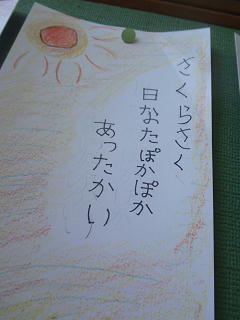 さくらさく
日なたぽかぽか
あったかい